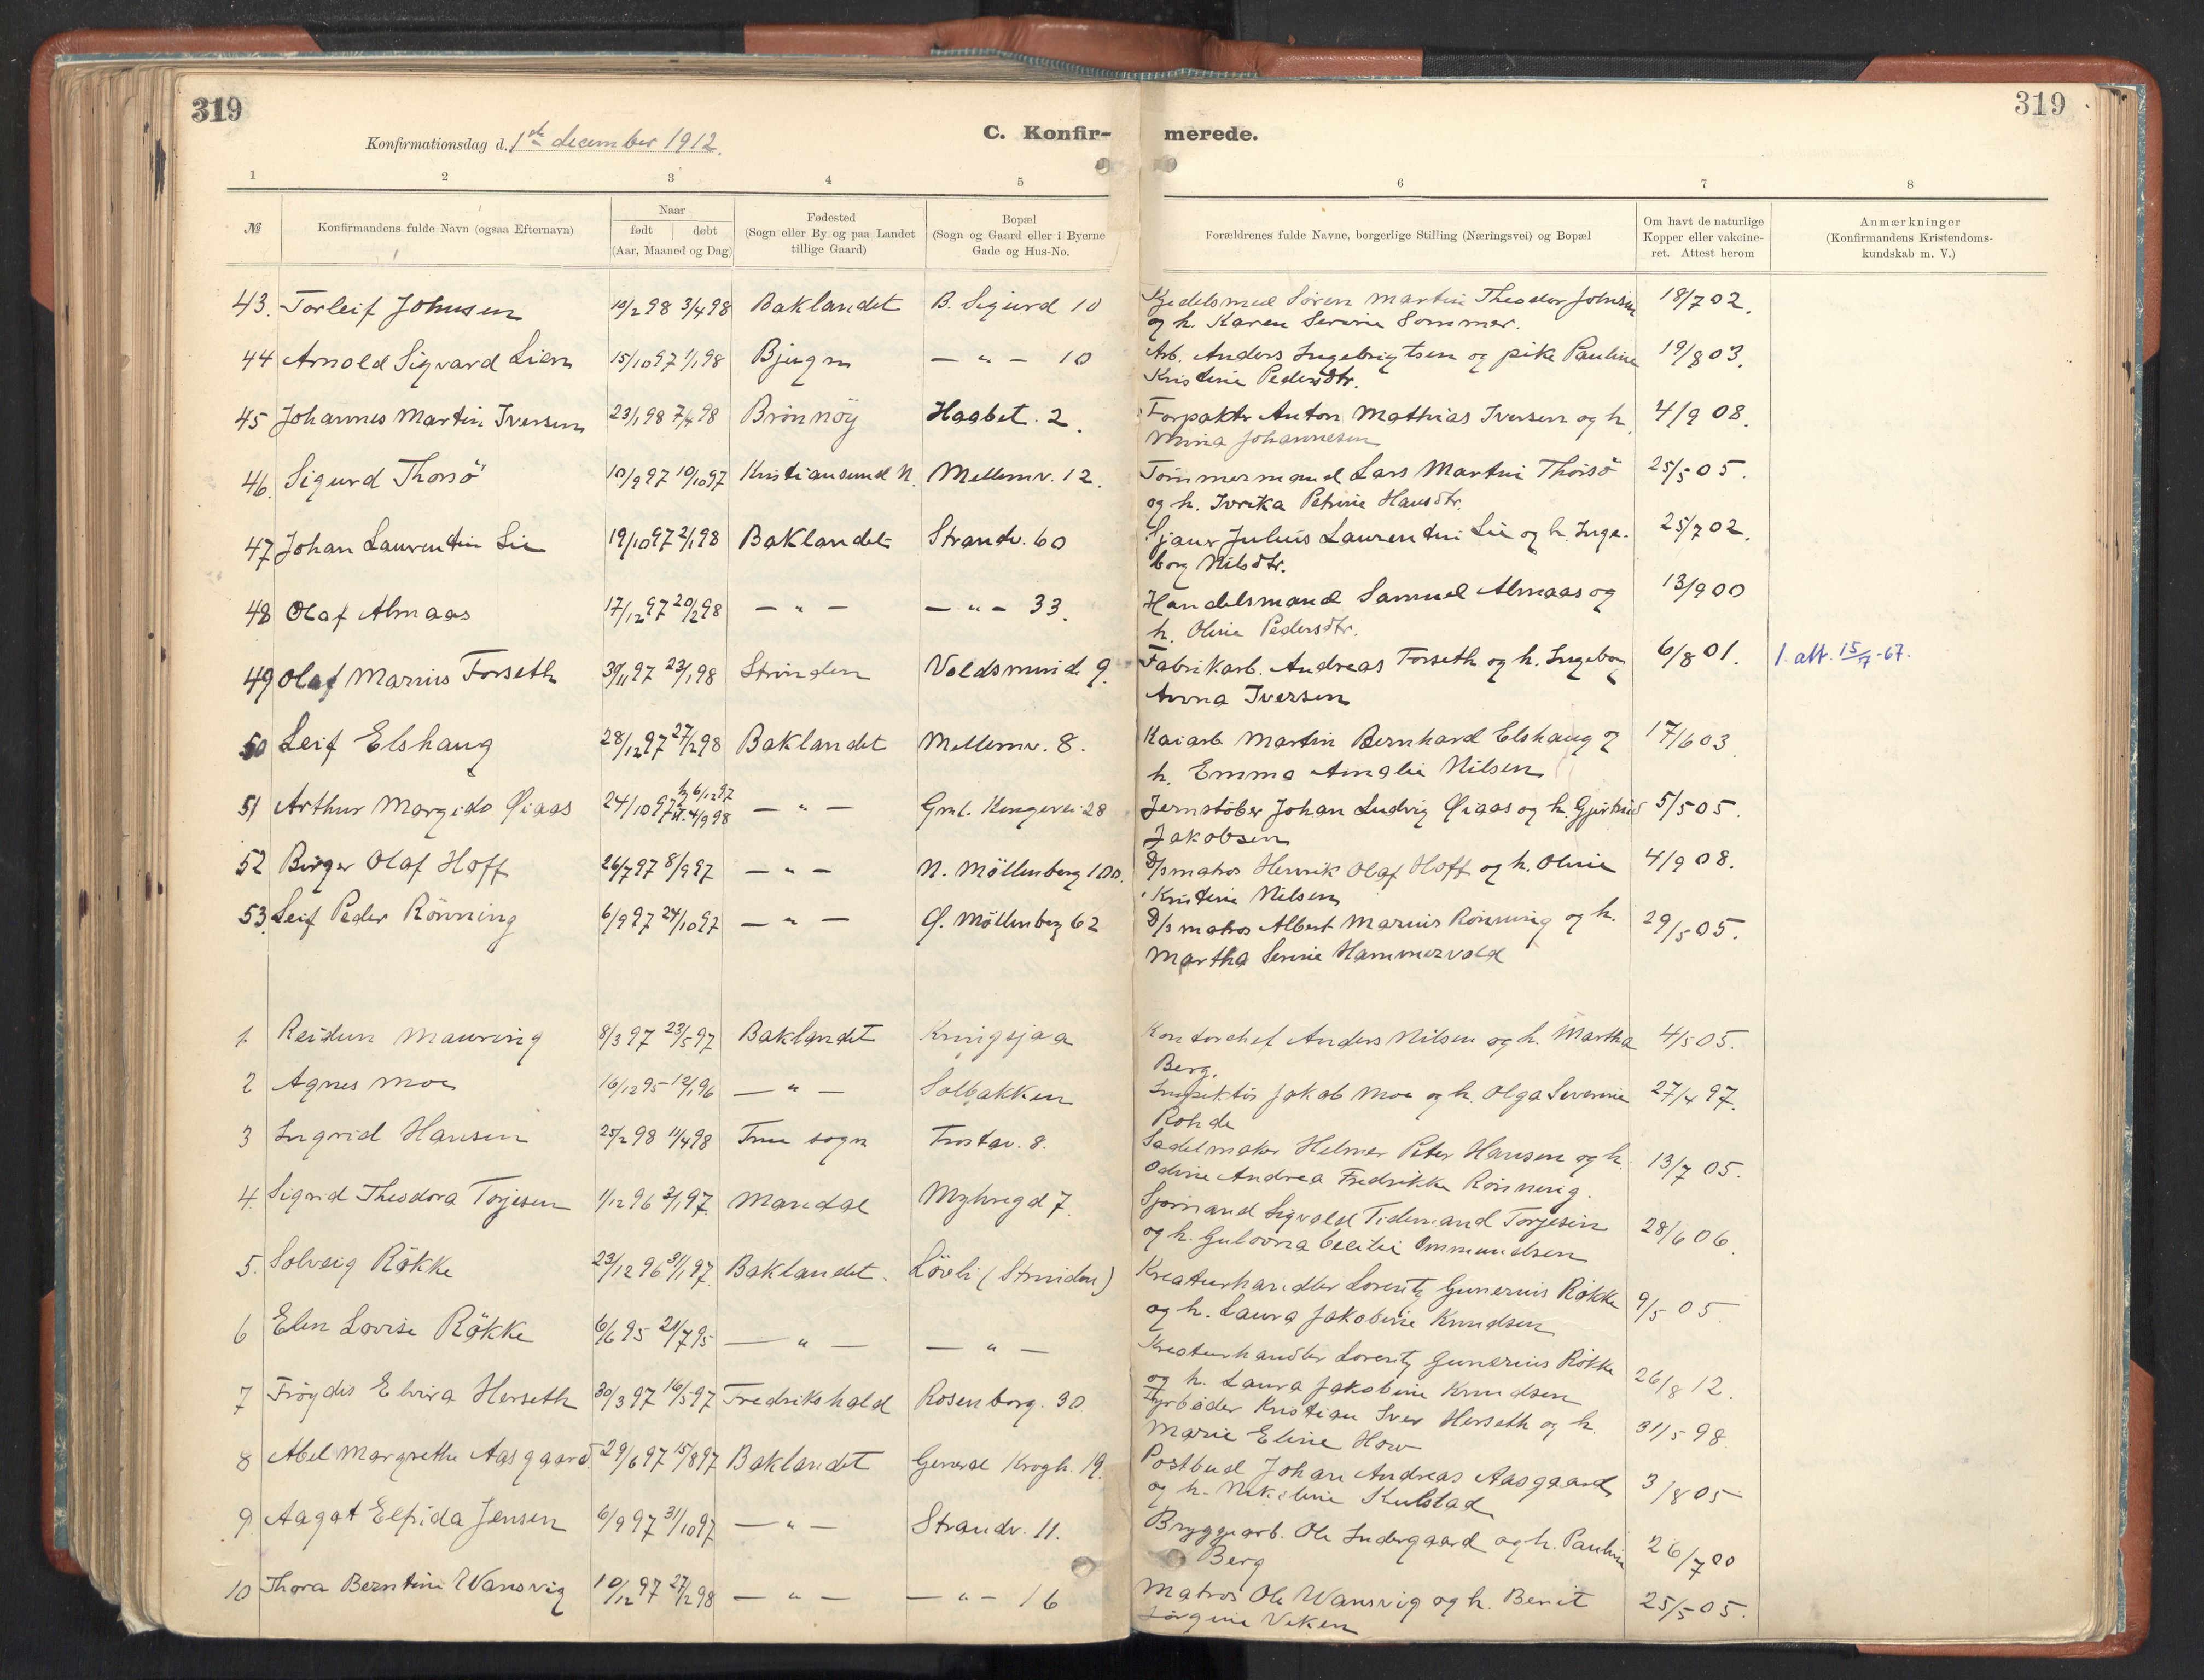 319
319
Konfirmationsdag d. 1ste december 1912.
C. Konfir-
merede.
1 2 3 4 5 6 7 8
№ Konfirmandens fulde Navn (ogsaa Efternavn)
Naar
født døbt
(Aar, Maaned og Dag)
Fødested
(Sogn eller By og paa Landet
tillige Gaard)
Bopæl
(Sogn og Gaard eller i Byerne
Gade og Hus-No.
Forældrenes fulde Navne, borgerlige Stilling (Næringsvei) og Bopæl
Om havt de naturlige
Kopper eller vakcine-
ret. Attest herom
Anmærkninger
(Konfirmandens Kristendoms-
kundskab m. V.)
43. Torleif Johnsen 10/2 98 3/4 98 Baklandet B. Sigurd 10 Kjedelsmed Sören Martin Theodor Johnsen 18/7 02.
og h. Karen Serine Sommer.
44 Arnold Sigvard Lien 15/10 97 1/1 98 Bjugn — " — 10 Arb. Anders Ingebrigtsen og pike Pauline 19/8 03.
Kristine Pedersdtr.
45 Johannes Martin Iversen 23/1 98 7/4 98 Brönnöy Haabet. 2. Forpakter Anton Mathias Iversen og h. 4/9 08.
Mina Johannesen
46. Sigurd Thorsö 10/9 97 10/10 97 Kristiansund N. Mellemv. 12. Tömmermand Lars Martin Thorsö 25/5 05.
og h. Ivrika Petrine Hansdtr.
47 Johan Laurentin Lie 19/10 97 2/1 98 Baklandet Strandv. 60 Sjauer Julius Laurentin Lie og h. Inge- 25/7 02.
borg Nilsdtr.
48 Olaf Almaas 17/12 97 20/2 98 — " — — " — 33. Handelsmand Samuel Almaas og 13/9 00
h. Oline Pedersdtr.
49 Olaf Marius Forseth 30/11 97 23/1 98 Strinden Voldsmind 9. Fabrikarb. Andreas Forseth og h. Ingeborg 6/8 01. 1. att. 15/7-67.
Anna Iversen
50 Leif Elshaug 28/12 97 27/2 98 Baklandet Mellemv. 8. Kaiarb Martin Bernhard Elshaug og 17/6 03
h. Emma Amalie Nilsen
51 Arthur Margido Øiaas 24/10 97 hj 6/12 97 K. 4/9 98 — " — Gml. Kongevei 28 Jernstöber Johan Ludvig Øiaas og h. Gjertrud 5/5 05.
Jakobsen
52 Birger Olaf Hoff 26/7 97 8/9 97 — " — N. Möllenberg 100. D/s matros Henrik Olaf Hoff og h. Oline 4/9 08.
Kristine Nilsen
53. Leif Peder Rönning 6/9 97 24/10 97 — " — Ø. Möllenberg 62 D/s matros Albert Marius Rönning og h. 29/5 05.
Martha Serine Hammervold
1. Reidun Mauring 8/3 97 23/5 97 Baklandet Kringsjaa Kontorchef Anders Nilsen og h. Martha 4/5 05.
Berg.
2 Agnes Moe 16/12 95 12/1 96 — " — Solbakken Inspektör Jakob Moe og h. Olga Severine 27/4 97.
Rohde
3 Ingrid Hansen 25/2 98 11/4 98 Frue sogn Frostav. 8. Sadelmaker Helmer Peter Hansen og h. 13/7 05.
Odine Andrea Fredrikke Rönning.
4. Sigrid Theodora Torjesen 1/12 96 3/1 97. Mandal Myhregd 7. Sjömand Sigvald Tidemand Torjesen 28/6 06.
og h. Gulovna Cecilie Ommundsen
5. Solveig Rökke 23/12 96 31/1 97. Baklandet. Lövli (Strinden) Kreaturhandler Lorentz Gunerius Rökke 9/5 05
og h. Laura Jakobine Knudsen
6 Elen Lovise Rökke 6/6 95 21/7 95 — " — — " — Kreaturhandler Lorentz Gunerius Rökke 26/8 12.
og h. Laura Jakobine Knudsen
7 Fröydis Elvira Herseth 30/3 97 16/5 97 Fredrikshald Rosenborg. 30. Fyrböder Kristian Iver Herseth og h. 31/5 98.
Marie Eline How
8 Abel Margrethe Aasgaard. 29/6 97 15/8 97 Baklandet General Krogh. 19. Postbud Johan Andreas Aasgaard 3/8 05
og h. Nikoline Kulstad
9. Aagot Elfrida Jensen 6/9 97 31/10 97 — " — Strandv. 11. Bryggearb. Ole Indergaard og h. Pauline 26/7 00
Berg
10 Thora Berntine Wansvig 10/12 97 27/2 98 — " — — " — 16 Matros Ole Wansvig og h. Berit 25/5 05.
Jörgine Veken